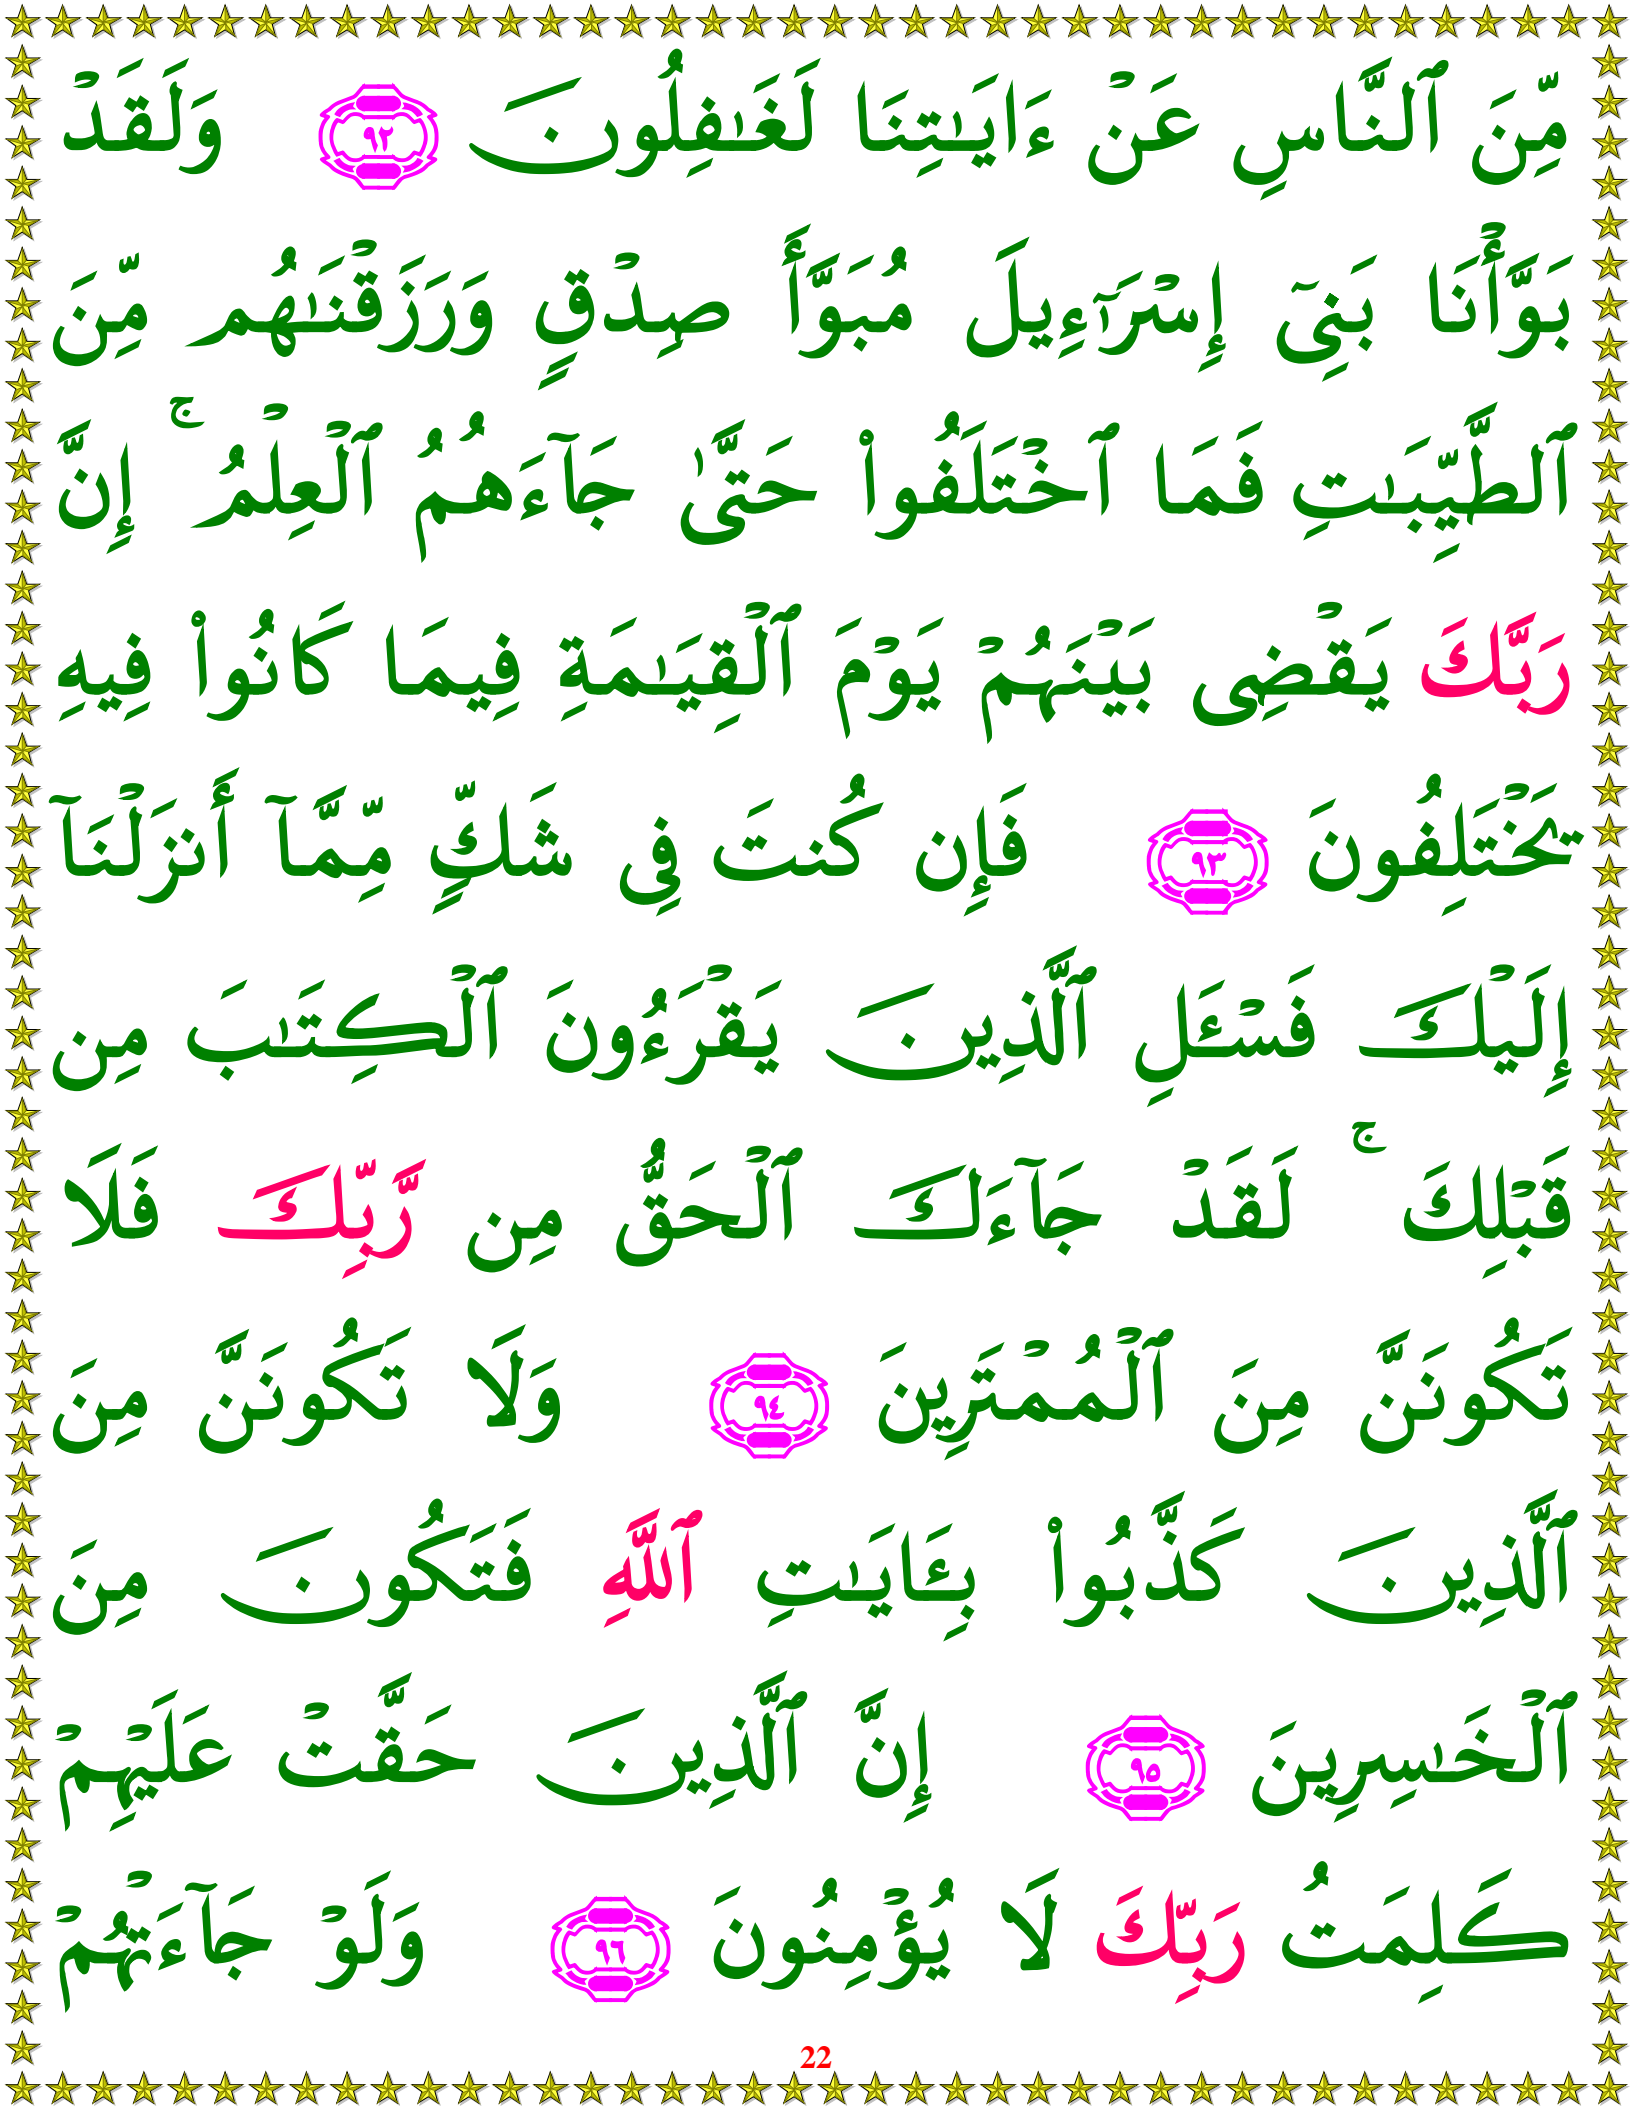 مِّنَ ٱلنَّاسِ عَنْ ءَايَـٰتِنَا لَغَـٰفِلُونَ ﴿٩٢﴾ وَلَقَدْ
بَوَّأْنَا بَنِىٓ إِسْرَٰٓءِيلَ مُبَوَّأَ صِدْقٍ وَرَزَقْنَـٰهُم مِّنَ
ٱلطَّيِّبَـٰتِ فَمَا ٱخْتَلَفُوا۟ حَتَّىٰ جَآءَهُمُ ٱلْعِلْمُ ۚ إِنَّ
رَبَّكَ يَقْضِى بَيْنَهُمْ يَوْمَ ٱلْقِيَـٰمَةِ فِيمَا كَانُوا۟ فِيهِ
يَخْتَلِفُونَ ﴿٩٣﴾ فَإِن كُنتَ فِى شَكٍّ مِّمَّآ أَنزَلْنَآ
إِلَيْكَ فَسْـَٔلِ ٱلَّذِينَ يَقْرَءُونَ ٱلْكِتَـٰبَ مِن
قَبْلِكَ ۚ لَقَدْ جَآءَكَ ٱلْحَقُّ مِن رَّبِّكَ فَلَا
تَكُونَنَّ مِنَ ٱلْمُمْتَرِينَ ﴿٩٤﴾ وَلَا تَكُونَنَّ مِنَ
ٱلَّذِينَ كَذَّبُوا۟ بِـَٔايَـٰتِ ٱللَّهِ فَتَكُونَ مِنَ
ٱلْخَـٰسِرِينَ ﴿٩٥﴾ إِنَّ ٱلَّذِينَ حَقَّتْ عَلَيْهِمْ
كَلِمَتُ رَبِّكَ لَا يُؤْمِنُونَ ﴿٩٦﴾ وَلَوْ جَآءَتْهُمْ
22